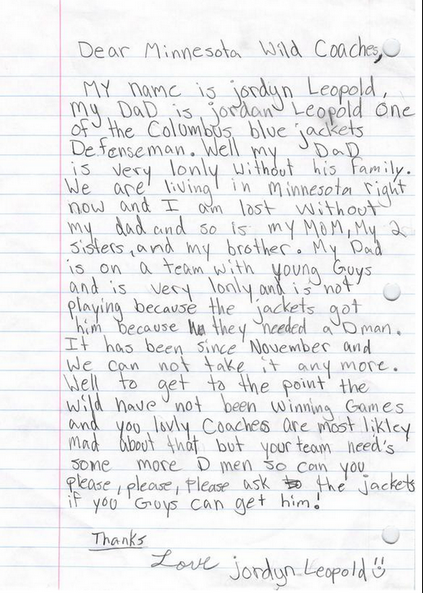 Dear Minnesota Wild Coaches,
MY name is jordyn Leopold,
my DaD is jordan Leopold one
of the Columbus blue jackets
Defenseman. Well my DaD
is very lonly without his family.
We are living in Minnesota right
now and I am lost without
my dad and so is my MoM, My 2
sisters, and my brother. My Dad
is on a team with young Guys
and is very lonly and is not
playing because the jackets got
him because they needed a D man.
It has been since November and
We can not take it any more.
Well to get to the point the
wild have not been winning Games
and you lovly Coaches are most likley
mad about that but your team need's
some more D men so can you
please, please, Please ask the jackets
if you Guys can get him!
Thanks
Love jordyn Leopold